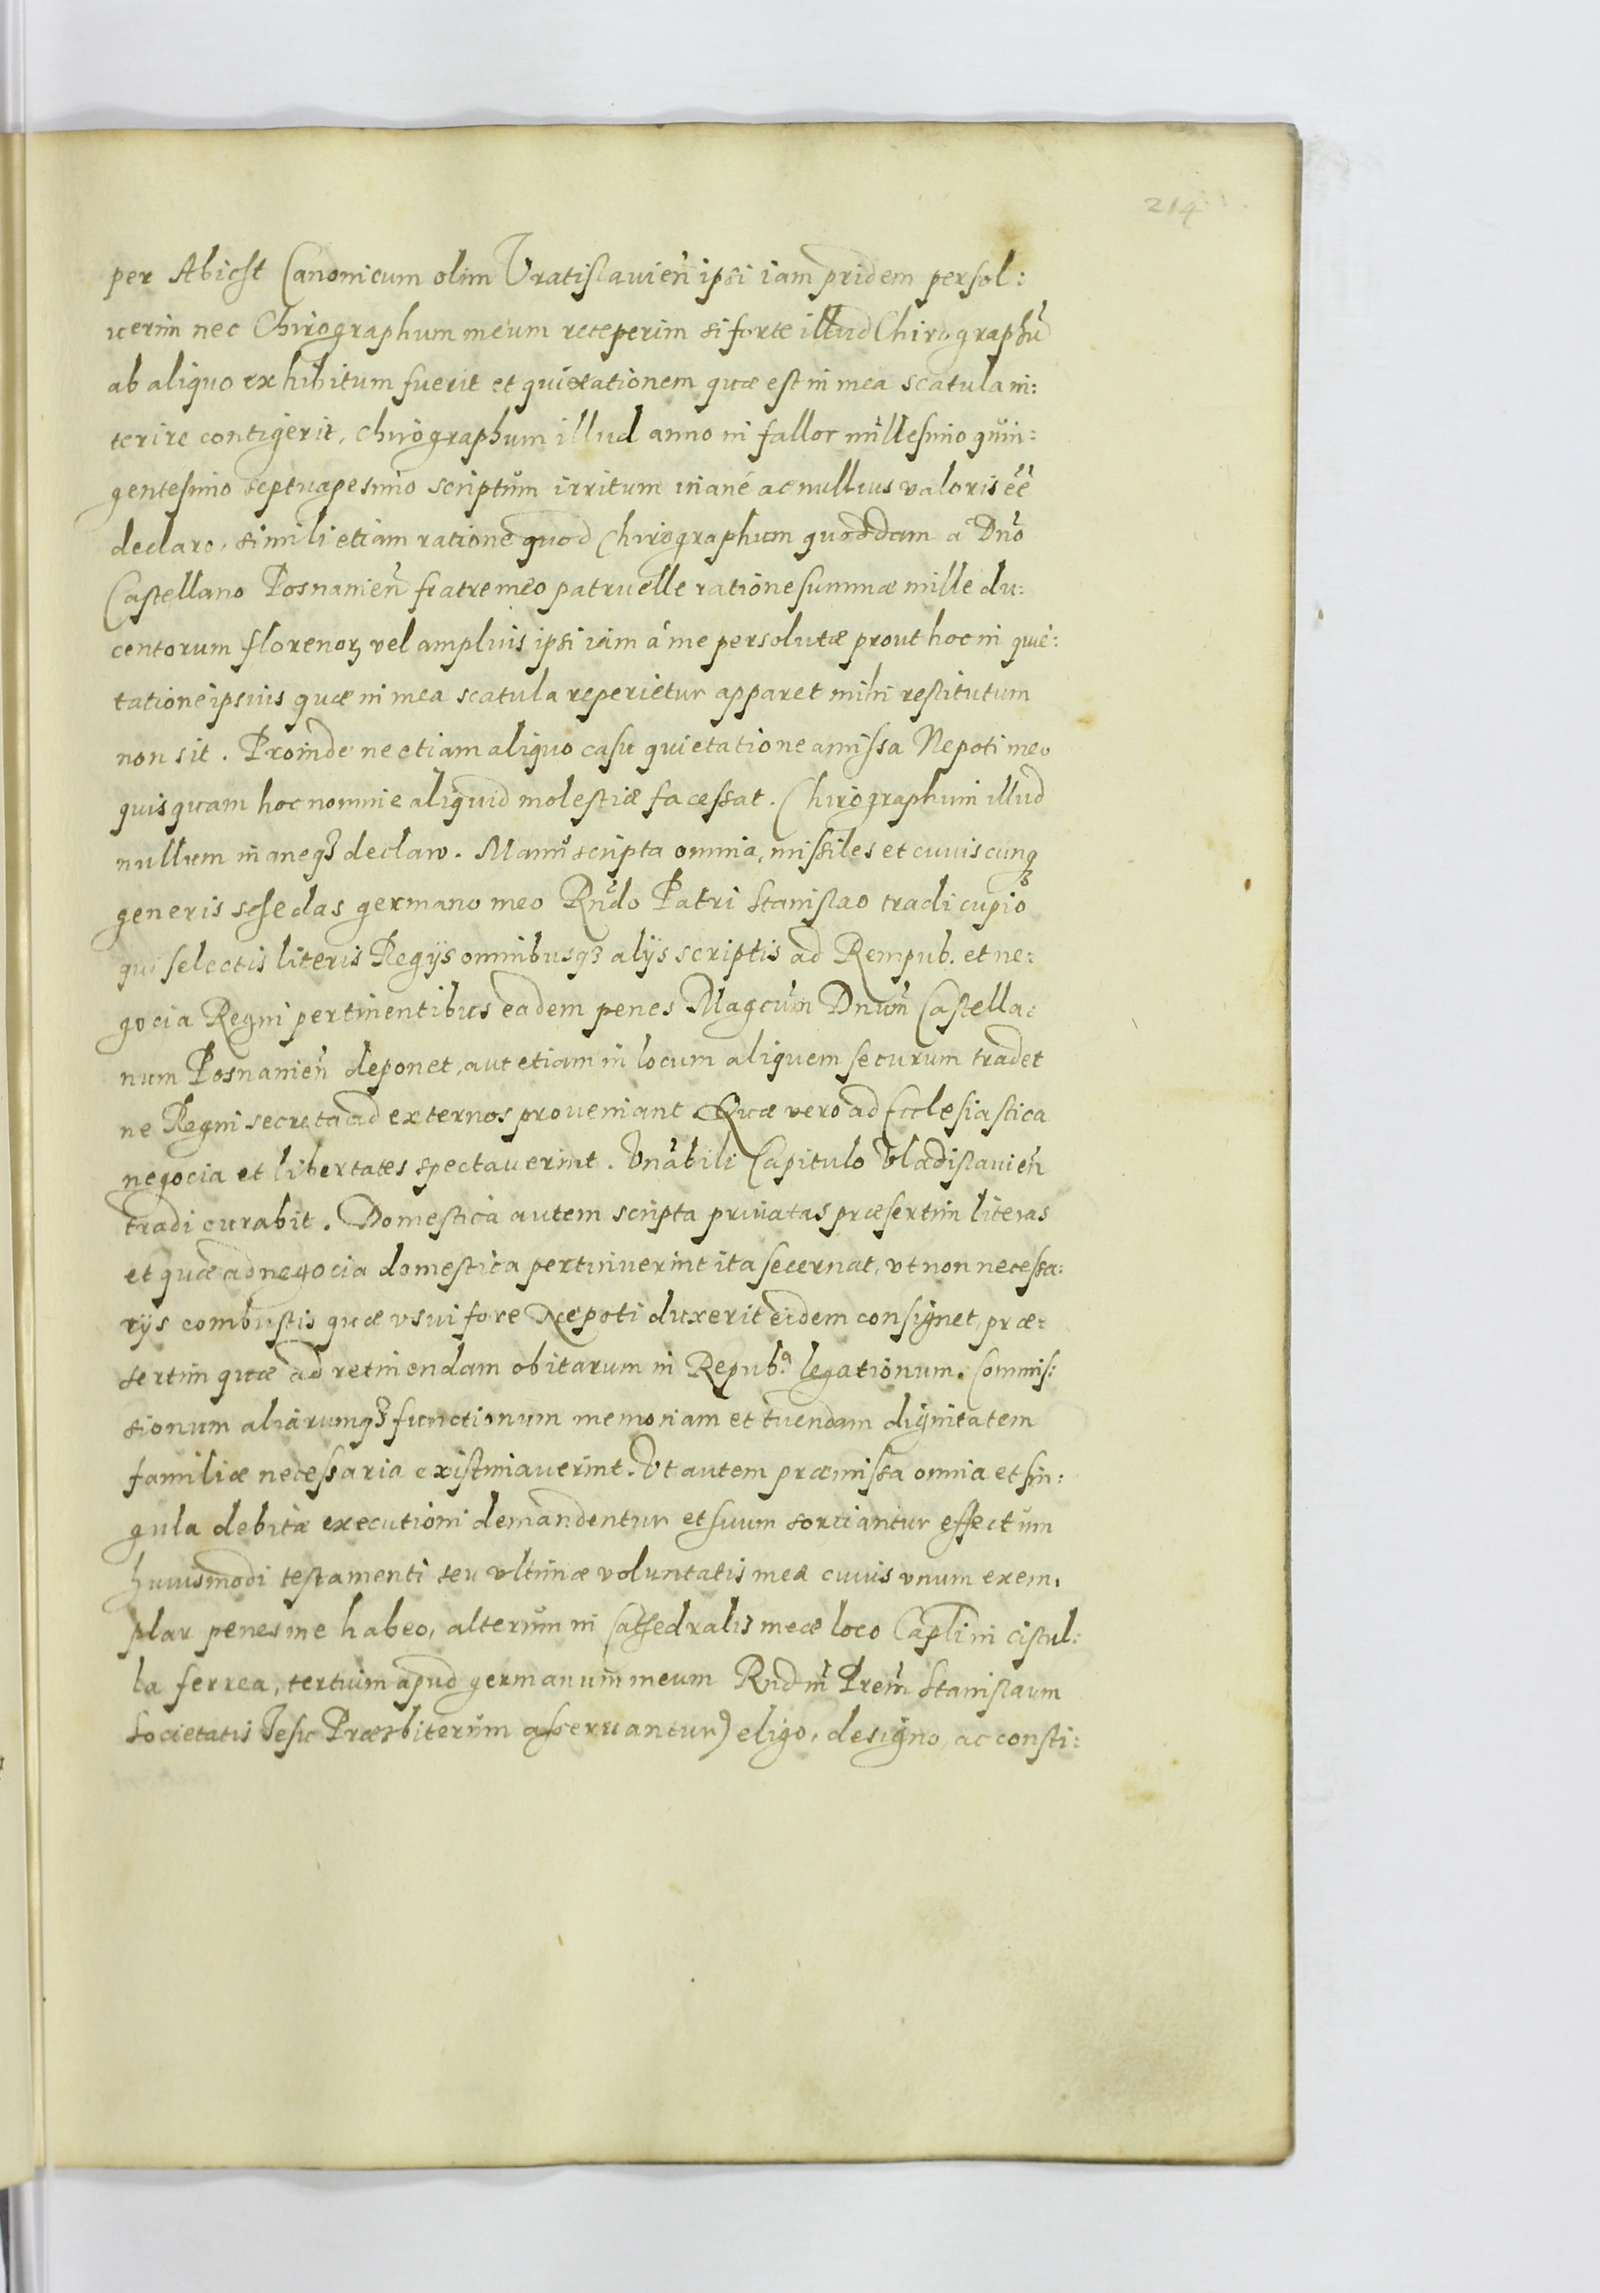 214
per Abicht Canonicum olim Vratislavień ipsi iam pridem persol:
uerim nec Chirographum meum receperim si forte illud Chirographũ
ab aliquo exhibitum fuerit et quietationem quæ est in mea scatula in:
terire contigerit, chirographum illud anno ni fallor millesimo quin:
gentesimo septuagesimo scriptum irritum inane ac nullius valoris ẽẽ
declaro, simili etiam ratione quod Chirographum quoddam a Dño
Castellano Posnanień fratre meo patruelle ratione summæ mille du:
centorum florenoꝝ vel amplius ipsi iam á me persolutæ prout hoc in quie:
tatione ipsius quæ in mea scatula reperietur apparet mihi restitutum
non sit. Proinde ne etiam aliquo casu quietatione amissa Nepoti meo
quisquam hoc nomine aliquid molestiæ facessat. Chirographum illud
nullum inaneqꝫ declaro. Manuscripta omnia, missiles et cuiuscunqꝫ
generis schedas germano meo Rñdo Patri Stanislao tradi cupio
qui selectis literis Regijs omnibusqꝫ alijs scriptis ad Rempub. et ne:
gocia Regni pertinentibus eadem penes Magcũm Dnũm Castella:
num Posnanień deponet, aut etiam in locum aliquem securum tradet
ne Regni secreta ad externos proueniant. Quæ vero ad Ecclesiastica
negocia et libertates spectauerint. Vnãbili Capitulo Vladislauień
tradi curabit. Domestica autem scripta priuatas præsertim literas
et quæ ad negocia domestica pertinuerint ita secernat, vt non necessa:
rijs combustis quæ vsui fore Nepoti duxerit eidem consignet, præ:
sertim quæ ad retinendam obitarum in Repub.ª legationum. Commis:
sionum aliarumqꝫ functionum memoriam et tuendam dignitatem
familiæ necessaria existimauerint. Vt autem præmissa omnia et sin:
gula debitæ executioni demandentur et suum sortiantur effectum
huiusmodi testamenti seu vltimæ voluntatis meæ cuius vnum exem.
plar penes me habeo, alterum in Cathedralis meæ loco Caplni in cistul:
la ferrea, tertium apud germanum meum Rndm̃ Prem̃ Stanislaum
Societatis Iesu Præsbiterum asseruantur) eligo, designo, ac consti: